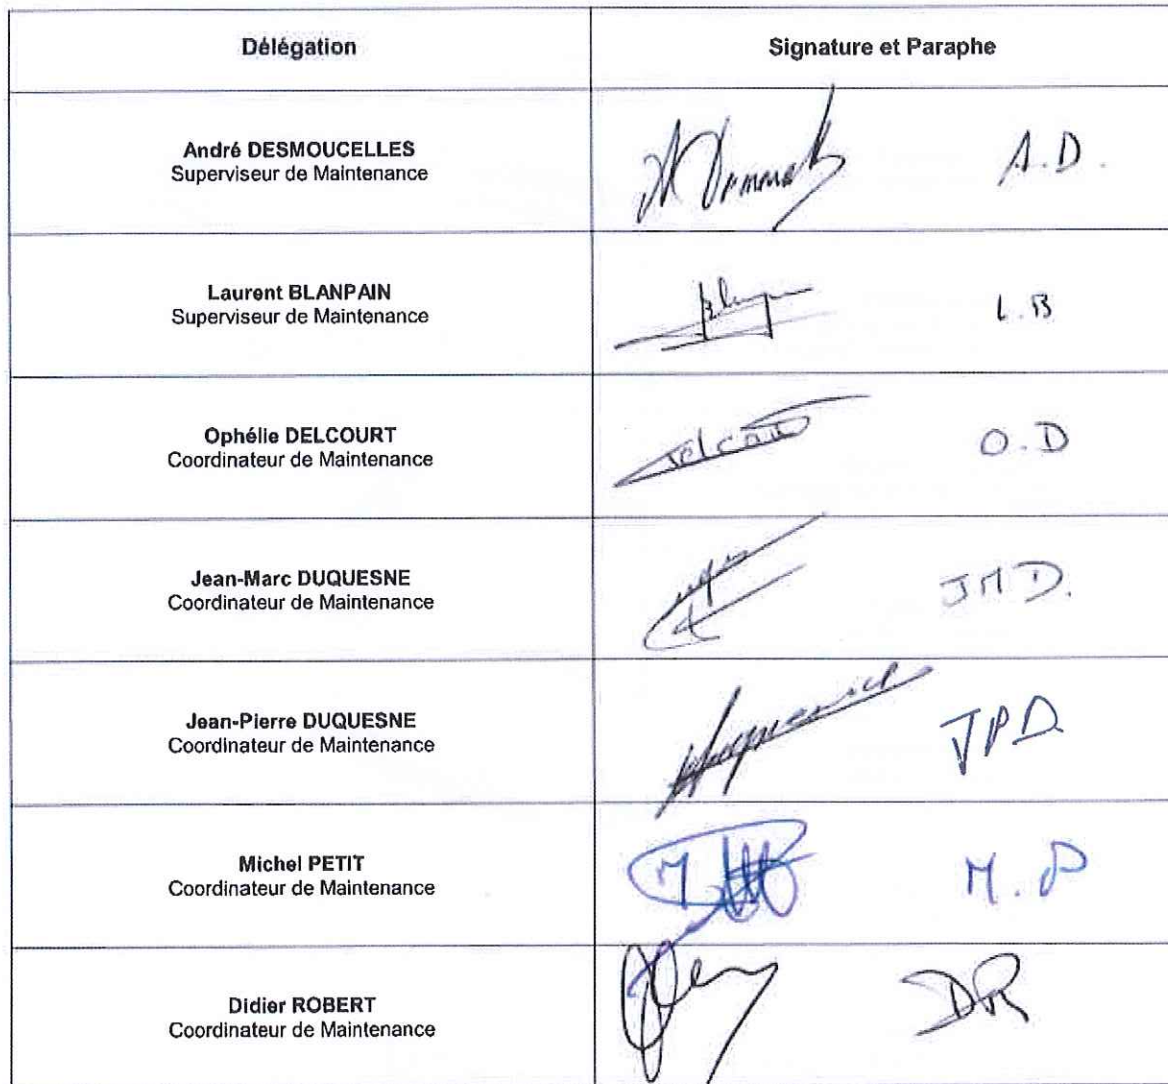 Délégation
Signature et Paraphe
André DESMOUCELLES
Superviseur de Maintenance
A.D.
Laurent BLANPAIN
Superviseur de Maintenance
L.B
Ophélie DELCOURT
Coordinateur de Maintenance
Delcourt
O.D
Jean-Marc DUQUESNE
Coordinateur de Maintenance
JMD.
Jean-Pierre DUQUESNE
Coordinateur de Maintenance
JPD.
Michel PETIT
Coordinateur de Maintenance
M.P
Didier ROBERT
Coordinateur de Maintenance
DR